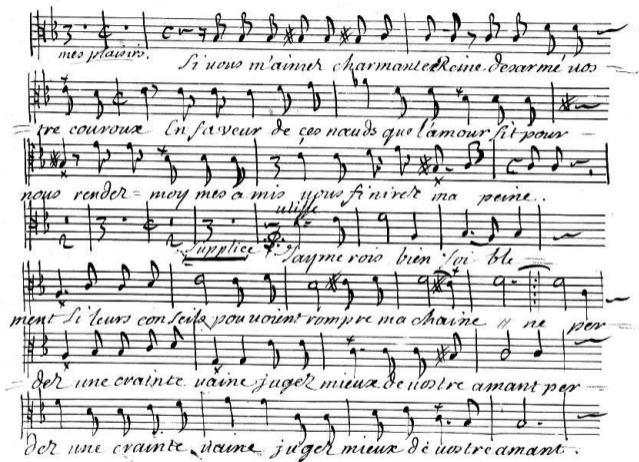 mes plaisirs. Si vous m'aimez charmante Reine desarmé vos
tre couroux En faveur de ces nœuds que l'amour fit pour
nous rendez = moy mes amis vous finirez ma peine..
ulisse
supplice jaymerois bien foible
ment si leurs conseils pouvoient rompre ma chaine ne per
dez une crainte vaine jugez mieux de vostre amant per
dez une crainte vaine jugez mieux de vostre amant.